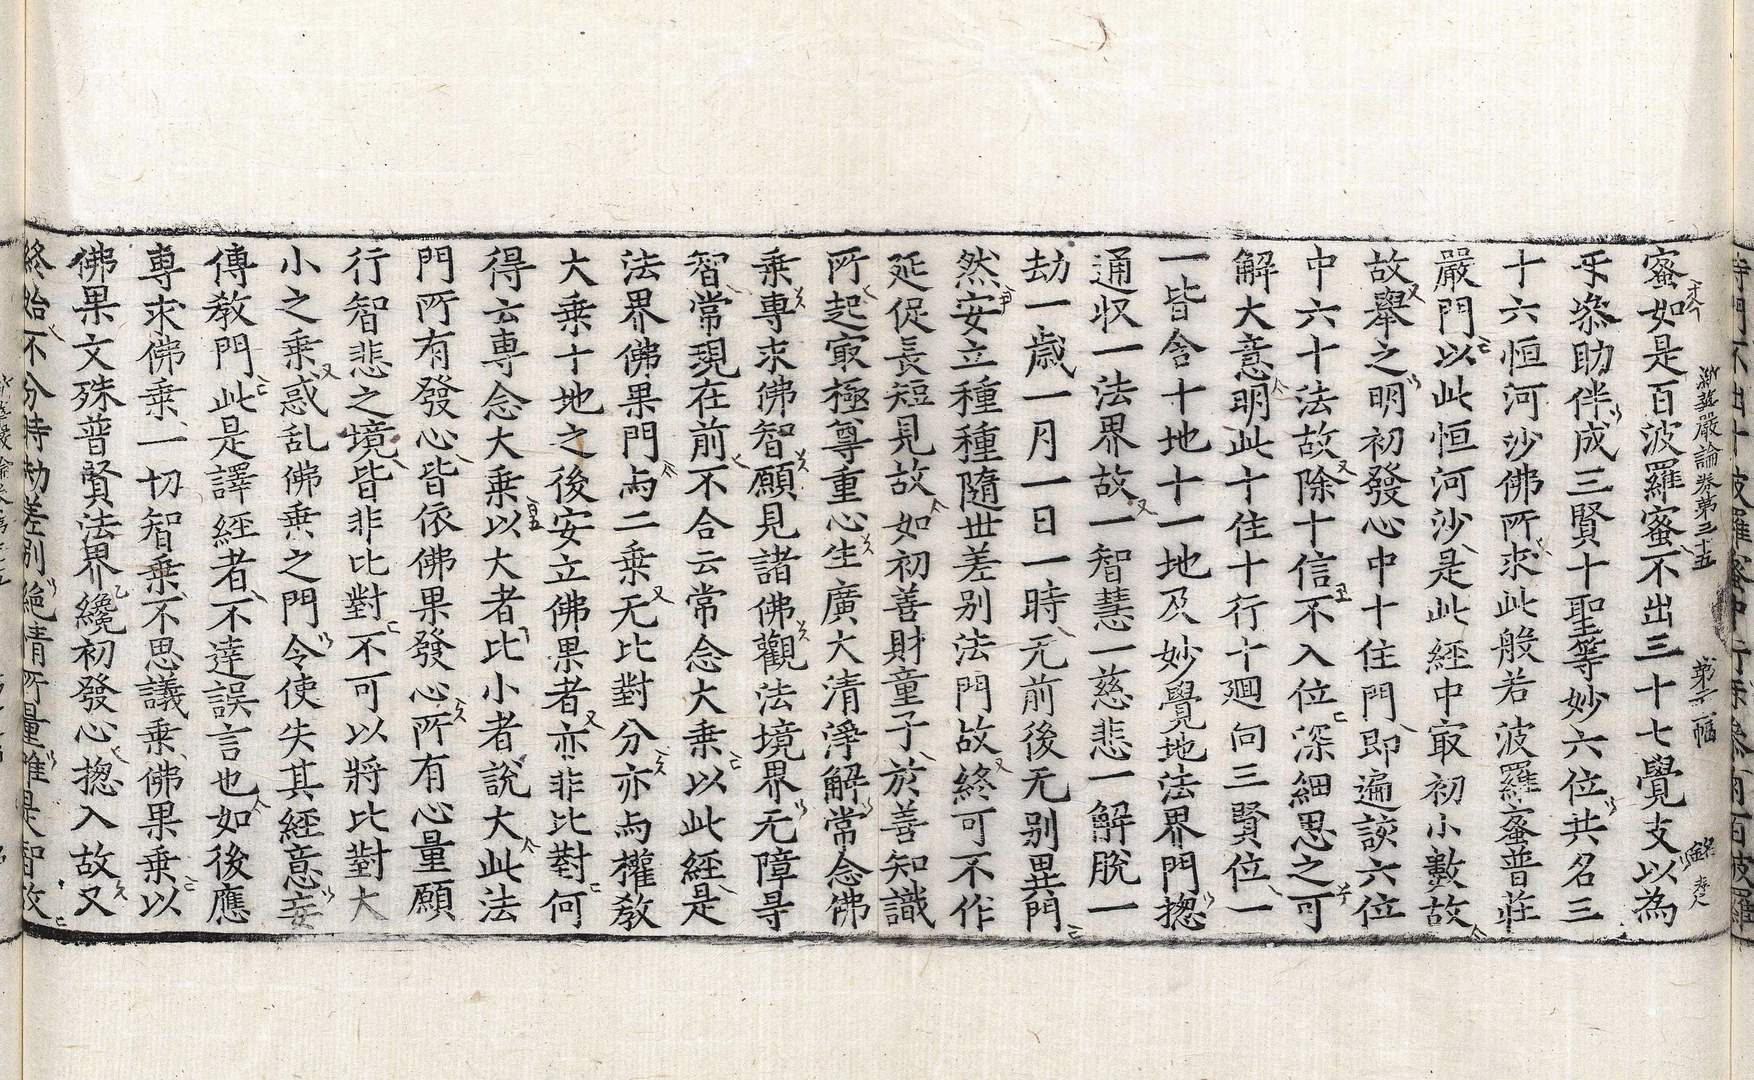 蜜如是百波羅蜜不出三十七覺支以為
新華嚴論卷第三十五 第二幅
乎叅助伴成三賢十聖等妙六位共名三
十六恒河沙佛所求此般若波羅蜜普莊
嚴門以此恒河沙是此經中㝡初小數故
故舉之明初發心中十住門即遍該六位
中六十法故除十信不入位深細思之可
解大意明此十住十行十迴向三賢位一
一皆含十地十一地及妙覺地法界門揔
通収一法界故一智慧一慈悲一解脫一
劫一歲一月一日一時无前後无别異門
然安立種種隨世差别法門故終可不作
延促長短見故如初善財童子於善知識
所起㝡極尊重心生廣大清淨解常念佛
乗專求佛智願見諸佛觀法境界无障㝵
智常現在前不合云常念大乗以此經是
法界佛果門与二乗无比對分亦与權教
大乗十地之後安立佛果者亦非比對何
得云專念大乗以大者比小者說大此法
門所有發心皆依佛果發心所有心量願
行智悲之境皆非比對不可以將比對大
小之乗惑乱佛乗之門令使失其經意妄
傳教門此是譯經者不達誤言也如後應
專求佛乗一切智乗不思議乗佛果乗以
佛果文殊普賢法界纔初發心揔入故又
終始不分時劫差别絶情所量唯是智故